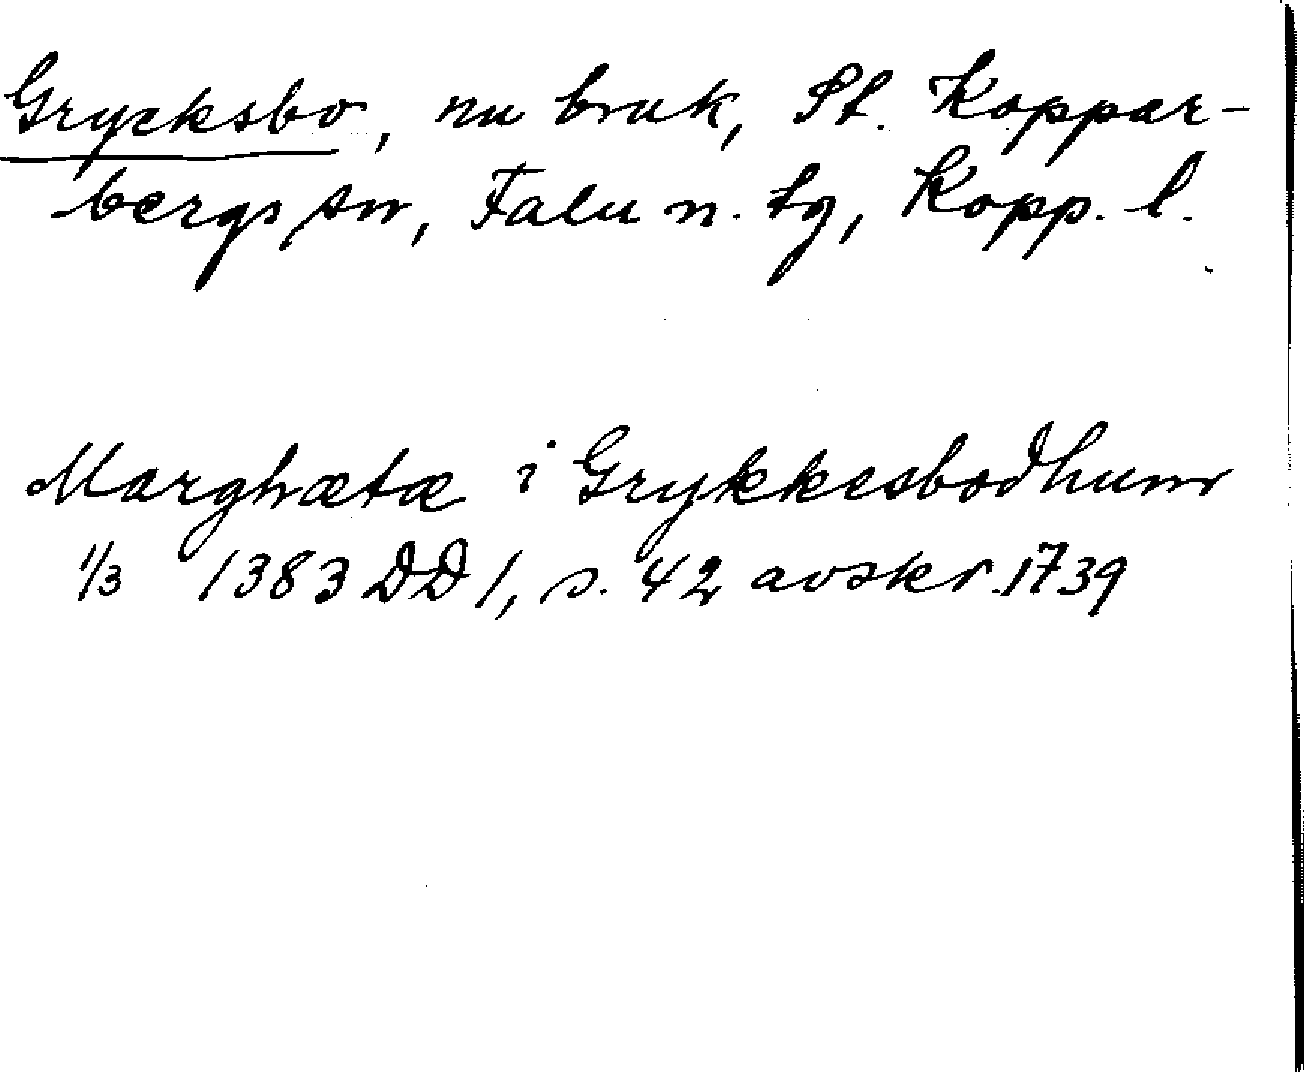 Grycksbo, nu bruk, St. Koppar-
bergs sn, Falu n. tg, Kopp. l.
Marghætæ i Grykkesbodhum
1/3 1383 DD 1, s. 42 avskr. 1739